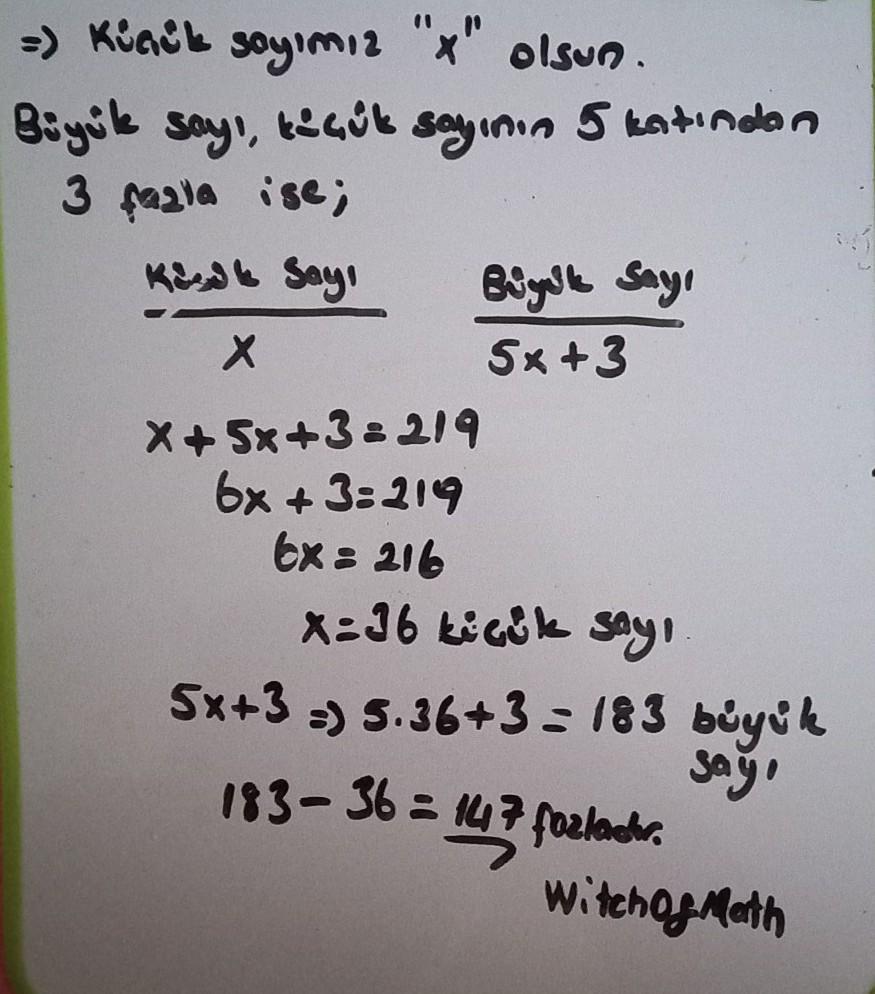 => Küçük sayımız "x" olsun.
Büyük sayı, küçük sayının 5 katından
3 fazla ise;
Küçük Sayı Büyük Sayı
x 5x+3
x+5x+3=219
6x+3=219
6x=216
x=36 küçük sayı.
5x+3 => 5.36+3=183 büyük
sayı
183-36=147 fazladır.
WitchOfMath